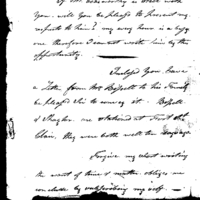 you, will you be pleased to present my
respects to him? my every hour is a busy
one therefore I cannot write him by this
opportunity.
Inclosed you have
a Letter from Mr Bissell to his Family
be pleased Sir to convey it. Bissell
& Shaylor are stationed at Fort St
Clair, they were both well
Forgive my short writing
the want of time & matter obliges me
conclude by subscribing myself